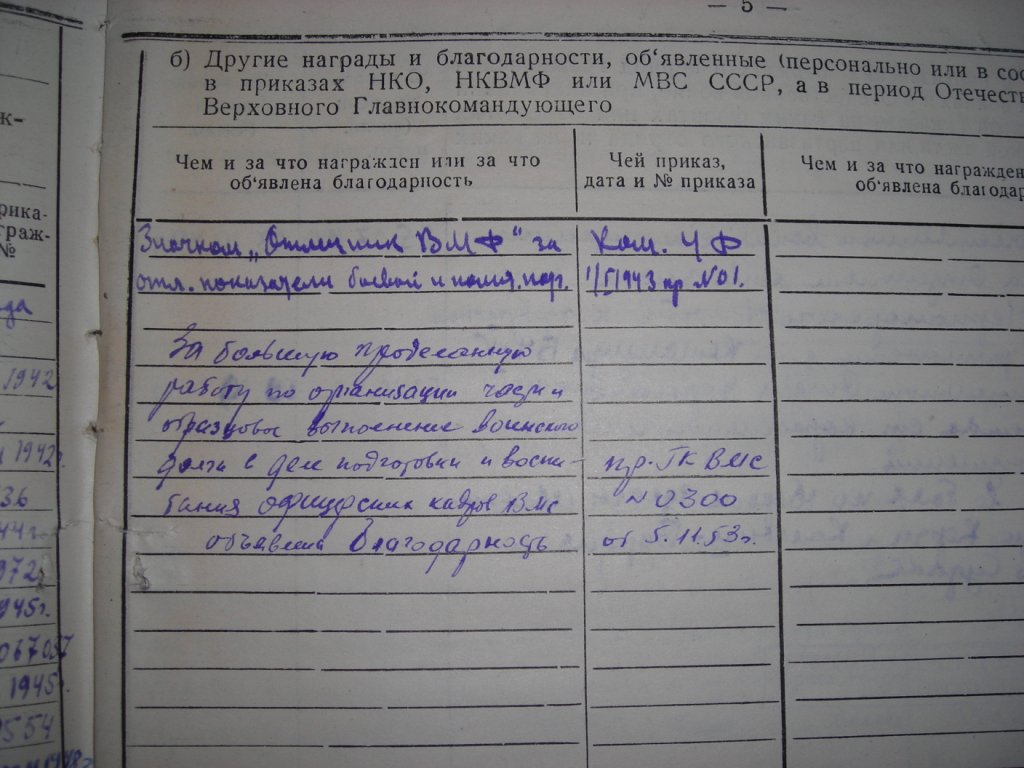 — 5 —
б) Другие награды и благодарности, об‘явленные (персонально или в сос
в приказах НКО, НКВМФ или МВС СССР, а в период Отечеств
Верховного Главнокомандующего
Чем и за что награжден или за что
об‘явлена благодарность
Чей приказ,
дата и № приказа
Чем и за что награжден
об‘явлена благодар
Значком „Отличник ВМФ“ за
отл. показатели боевой и полит. под.
Ком. ЧФ
1/I 1943 пр №01.
За большую проделанную
работу по организации части и
образцовое выполнение воинского
долга в деле подготовки и воспи-
тания офицерских кадров ВМС
объявлена Благодарность
пр. ГК ВМС
№ 0300
от 5.11.53г.
ж-
рика-
граж-
№
да
1942
1942г.
36
44г.
972
945г.
067057
1945г.
9554